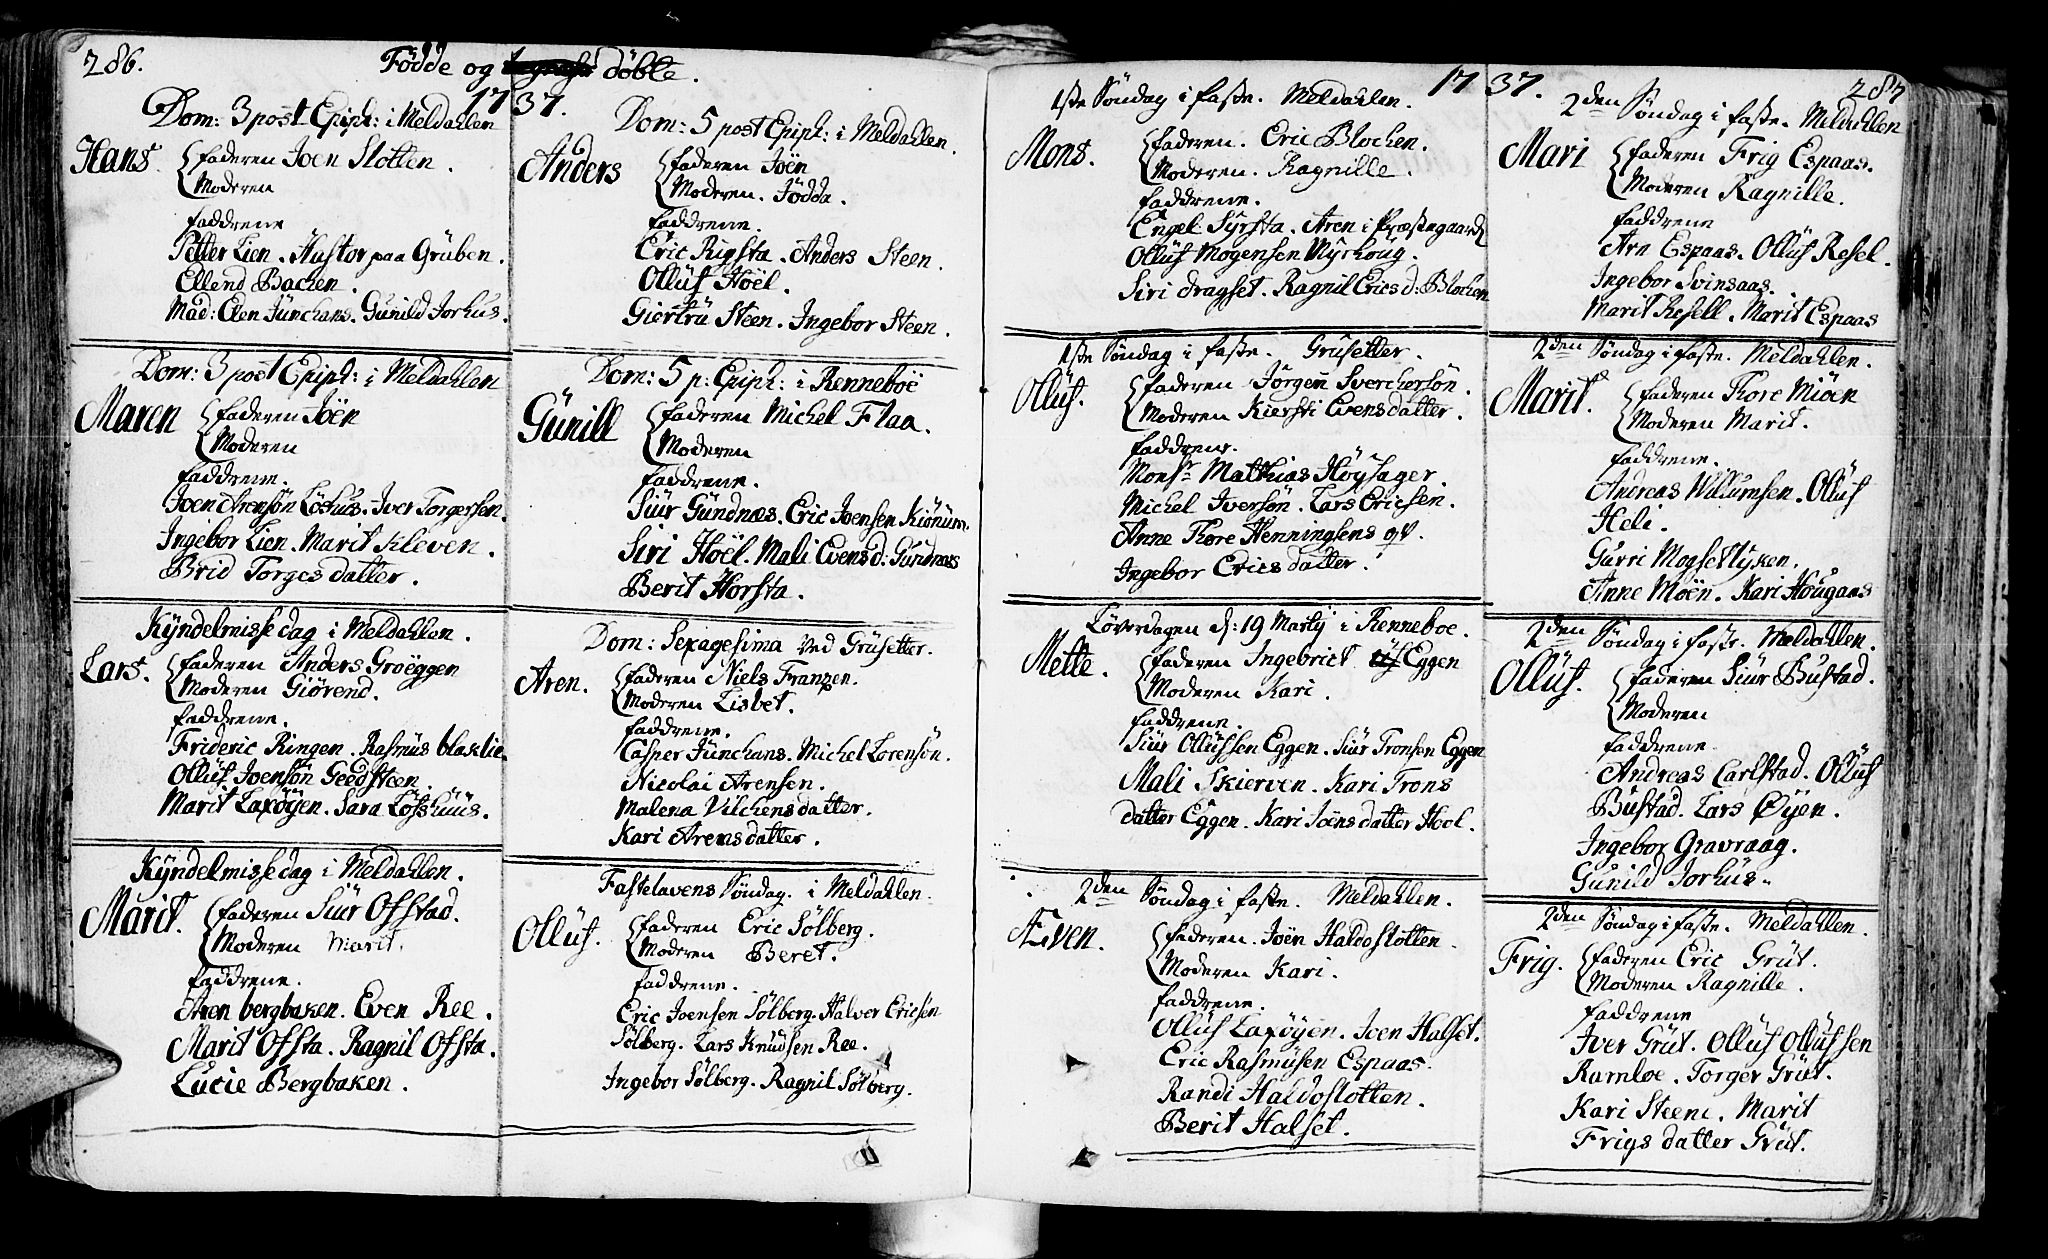 286.
Fødde og døbte.
1737.
Dom: 3 post Epiph: i Meldahlen
Hans. faderen Joen Slotten.
Moderen
faddrene
Petter Lien. Hustor paa Grüben.
Ellend Bachen.
Mad: Elen Jünchans. Gunild Jorhus.
Dom: 3 post Epiph: i Meldahlen
Maren faderen Joën
Moderen
faddrene.
Joen Arensøn Løshus. Iver Torgersen.
Ingebor Lien. Marit Kleven.
Brid Torgesdatter.
Kÿndelmisse dag i Meldahlen.
Lars. faderen Anders Groëggen
Moderen Giørend.
faddrene.
Frideric Ringen. Rasmus blaklie.
Ollüf Joensøn Geedsteen.
Marit Laxøÿen. Sara Løsshüüs.
Kÿndelmisse dag i Meldahlen.
Marit. faderen Siür Ofstad.
Moderen Marit.
faddrene.
Aren bergbaken. Even Ree.
Marit Ofsta. Ragnil Ofsta.
Lucie Bergbaken.
Dom: 5 post Epiph: i Meldahlen.
Anders faderen Joën
Moderen. Jødda.
faddrene.
Eric Rigsta. Anders Steen.
Ollüf Höël.
Giertrü Steen. Ingebor Steen.
Dom: 5 p: Epiph: i Renneboë
Günill faderen Michel Flaa.
Moderen
faddrene.
Siür Gündnæs. Eric Joensen Kiønüm.
Siri Höël. Mali Evensd: Gündnæs
Berit Horsta.
Dom: Sexagesima ved Grüsetter.
Aren. faderen Niels Franzen.
Moderen Lisbet.
faddrene.
Casper Jünchans. Michel Lorensøn.
Nicolai Arensen.
Malena Vilchensdatter.
Kari Arensdatter.
Fastelavens Søndag. i Meldahlen.
Ollüf. faderen Eric Sølberg.
Moderen Beret.
faddrene.
Eric Joensen Sølberg. Halver Ericsøn
Sølberg. Lars Knüdsen Ree.
Ingebor Sølberg. Ragnil Sølberg.
1737. 287
1ste Søndag i faste. Meldahlen.
Mons. faderen. Eric Blochen.
Moderen. Ragnille.
faddrene.
Engel Sÿrsta. Aren i Præstegaarde
Ollüf Mogensen Mÿrhoüg.
Siri dragset. Ragnil Ericsd: Blochen
1ste Søndag i faste. Grüsetter.
Ollüf. faderen Jörgen Sverchersøn.
Moderen Kiersti Evensdatter.
faddrene.
Monsr Matthias Höÿsager.
Michel Iversøn. Lars Ericsen.
Anne Thore Henningsens
Ingebor Ericsdatter.
Løverdagen d: 19 Martÿ i Renneboe.
Mette. faderen Ingebrict Eggen
Moderen Kari.
faddrene.
Siür Ollüssen Eggen. Siür Tronsen Eggen
Mali Skierven. Kari Trons
datter Eggen. Kari Joensdatter Hoel.
2den Søndag i faste. Meldahlen.
Even. faderen. Joën Haldoslotten.
Moderen Kari.
faddrene.
Ollüf Laxøÿen. Joen Halset.
Eric Rasmüsen Espaas.
Randi Haldoslotten.
Berit Halset.
2den Søndag i faste. Meldahlen
Mari faderen Frig Espaas.
Moderen Ragnille.
faddrene
Arn Espaas. Ollüf Resel.
Ingebor Svinsaas.
Marit Resell. Marit Espaas
2den Søndag i faste. Meldahlen.
Marit. faderen Thore Miöen
Moderen Marit.
faddrene.
Andreas Villumsen. Ollüf
Heli.
Gurri Mogsetlÿken.
Anne Möen. Kari Hougans
2den Søndag i faste. Meldahlen.
Ollüf. faderen Siür Büstad.
Moderen
faddrene.
Andreas Carlstad. Ollüf
Büstad. Lars Øÿen.
Ingebor Gravraag.
Gunild Jorhus.
2den Søndag i faste. Meldahlen.
Frig. faderen Eric Grüt.
Moderen Ragnille.
faddrene
Iver Grüt. Ollüf Ollüssen
Ramloe. Torger Grüt.
Kari Steen. Marit
Frigsdatter Grüt.